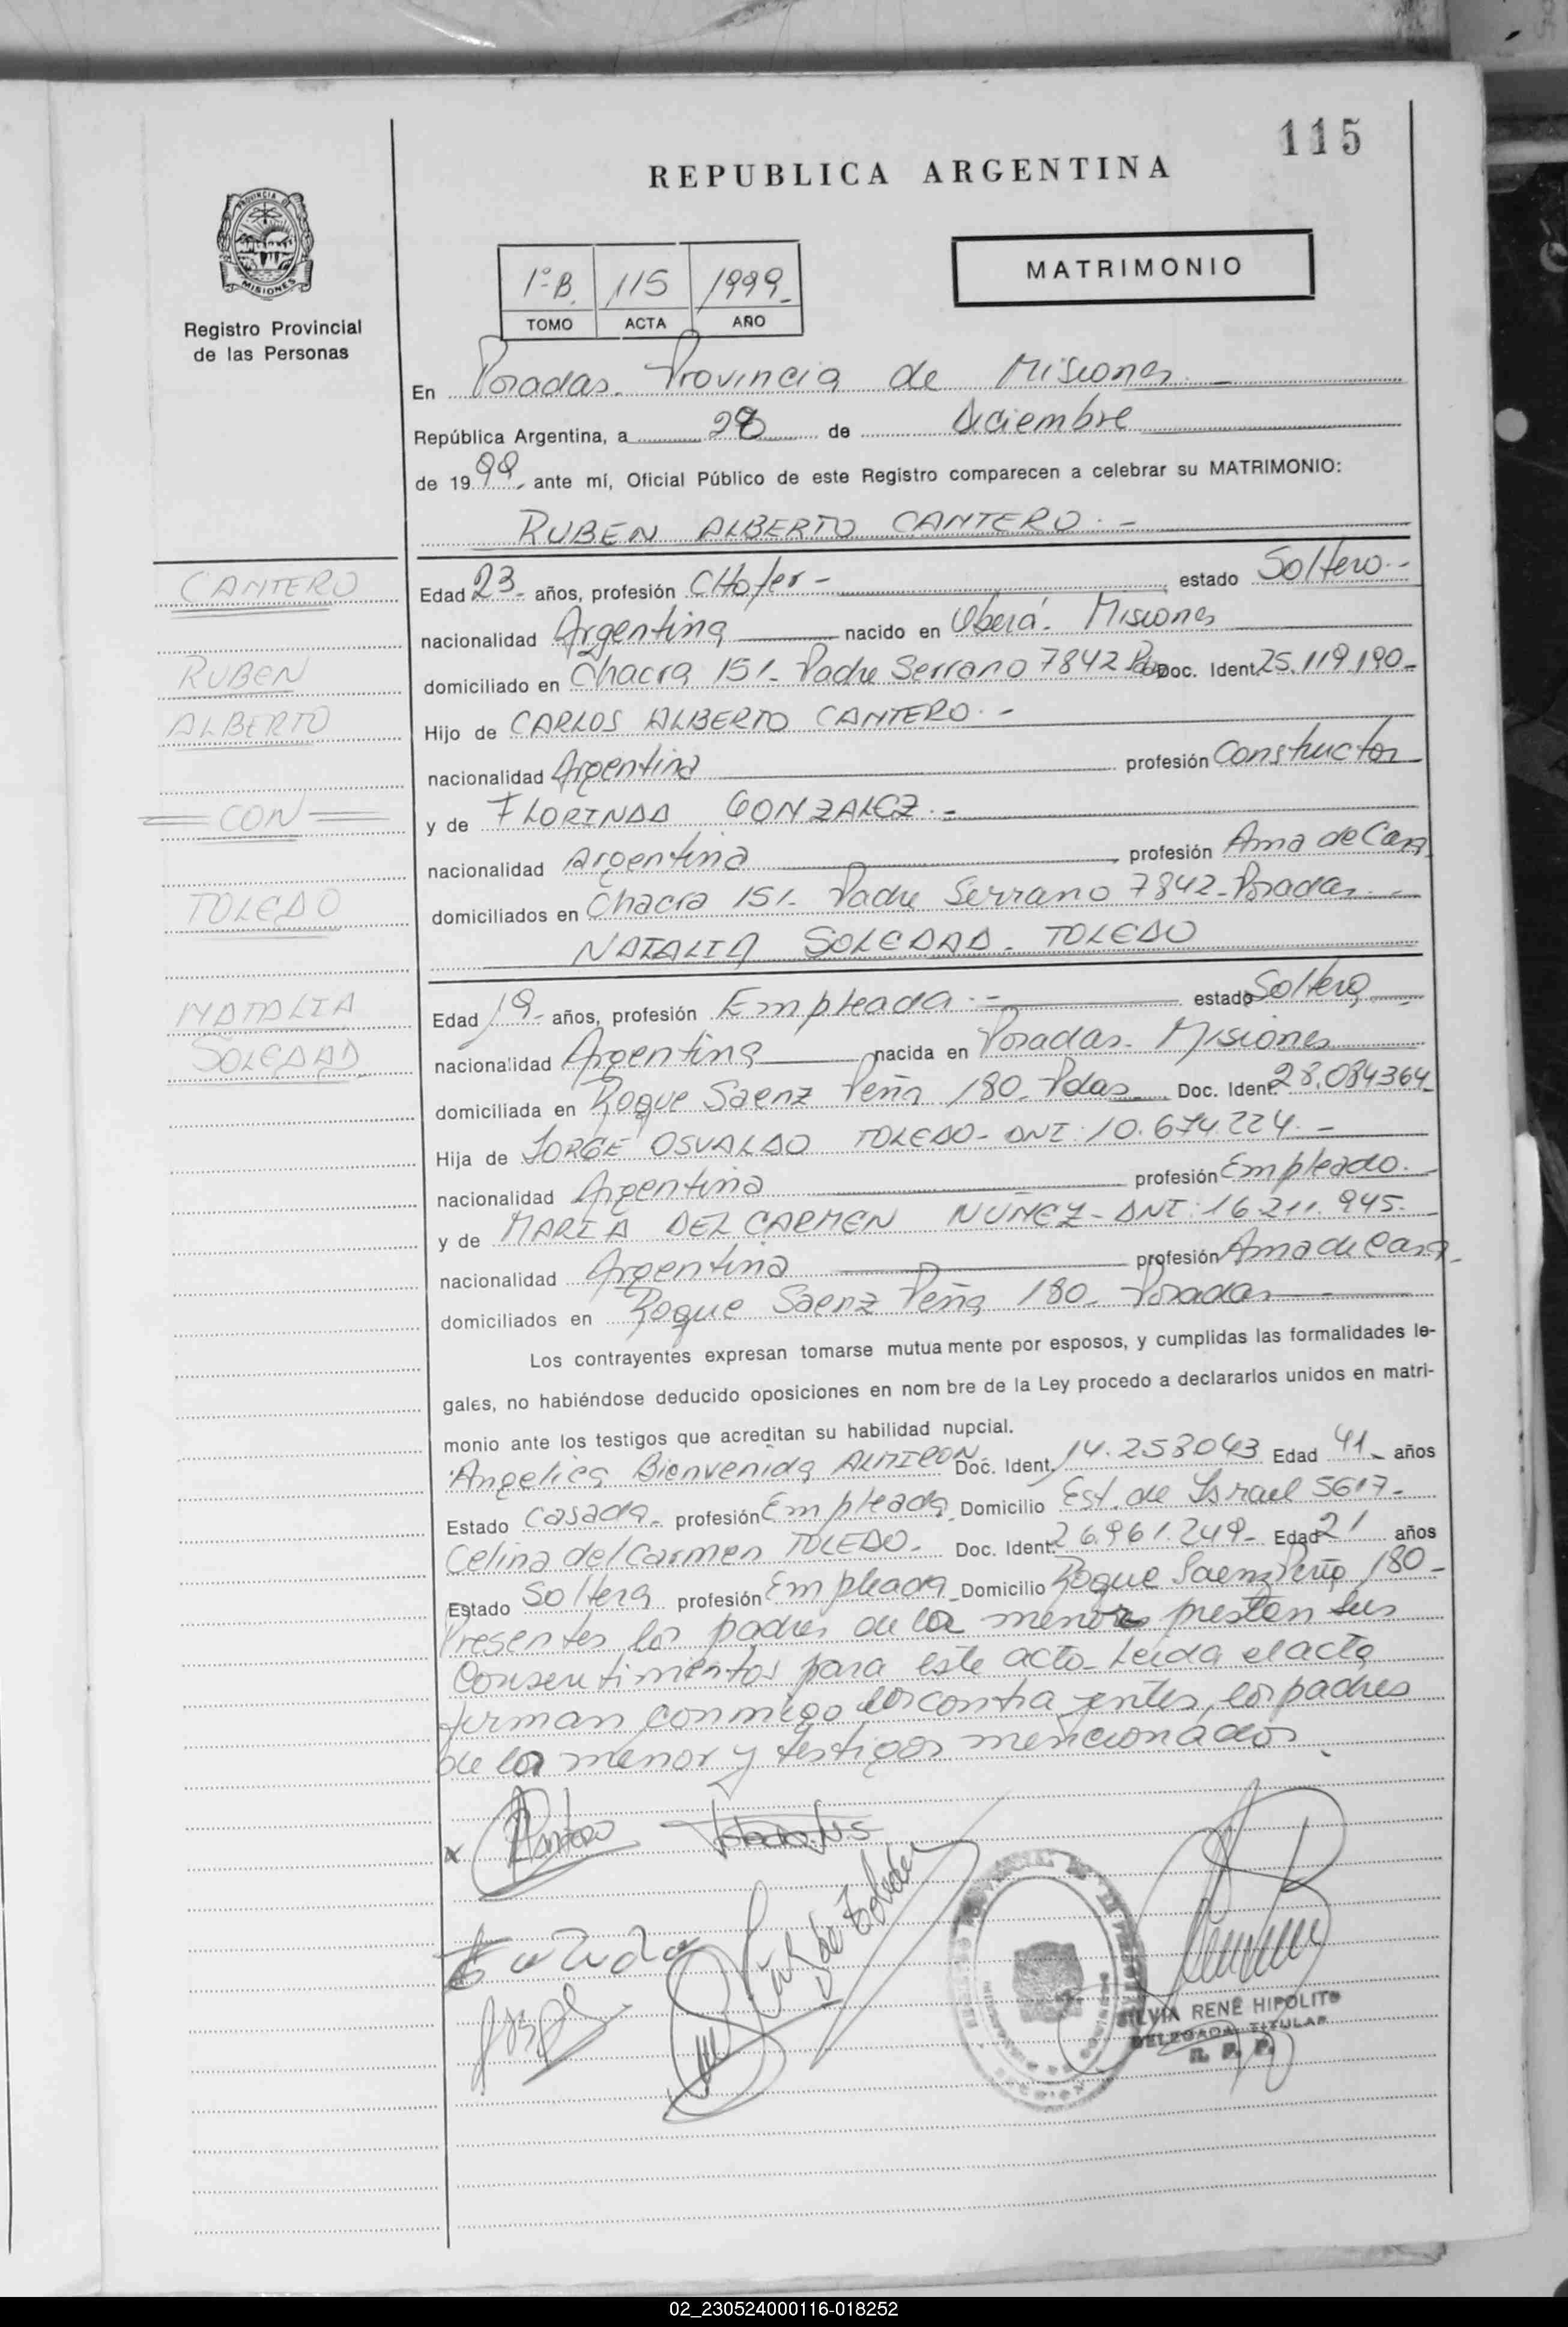 115
REPUBLICA ARGENTINA
PROVINCIA DE
MISIONES
Registro Provincial
de las Personas
1º B. 115 1999
TOMO ACTA AÑO
MATRIMONIO
En Posadas. Provincia de Misiones
República Argentina, a de Diciembre
de 1999, ante mí, Oficial Público de este Registro comparecen a celebrar su MATRIMONIO:
RUBEN ALBERTO CANTERO.-
CANTERO
RUBEN
ALBERTO
CON
TOLEDO
NATALIA
SOLEDAD
Edad 23- años, profesión CHofer- estado Soltero.-
nacionalidad Argentina nacido en Oberá. Misiones
domiciliado en Chacra 151- Padre Serrano 7842 Doc. Ident. 25.119.190-
Hijo de CARLOS ALBERTO CANTERO.-
nacionalidad Argentina profesión Constructor
y de FLORINDA GONZALEZ.-
nacionalidad Argentina profesión Ama de Casa
domiciliados en Chacra 151- Padre Serrano 7842-Posadas.-
NATALIA SOLEDAD- TOLEDO
Edad 19- años, profesión Empleada.- estado Soltera
nacionalidad Argentina nacida en Posadas- Misiones
domiciliada en Roque Saenz Peña 180- Pdas Doc. Ident. 28.084364-
Hija de JORGE OSVALDO TOLEDO- DNI: 10.674.224.-
nacionalidad Argentina profesión Empleado.
y de MARIA DEL CARMEN NUÑEZ- DNI: 16.211.945.
nacionalidad Argentina profesión Ama de Casa
domiciliados en Roque Saenz Peña 180- Posadas
Los contrayentes expresan tomarse mutua mente por esposos, y cumplidas las formalidades le-
gales, no habiéndose deducido oposiciones en nom bre de la Ley procedo a declararlos unidos en matri-
monio ante los testigos que acreditan su habilidad nupcial.
Angelica Bienvenida ALMIRON- Doc. Ident. 14.253043 Edad 41- años
Estado Casada- profesión Empleada Domicilio Est. de Israel 5617-
Celina del Carmen TOLEDO- Doc. Ident. 26.961.249- Edad 21 años
Estado Soltera profesión Empleada Domicilio Roque Saenz Peña 180-
Presentes los padres de la menor prestan sus
Consentimientos para este acto- Leida el acta
firman conmigo los contrayentes, los padres
de la menor y testigos mencionados
SILVIA RENÉ HIPOLITO
DELEGADA TITULAR
R. P. P.
02_230524000116-018252